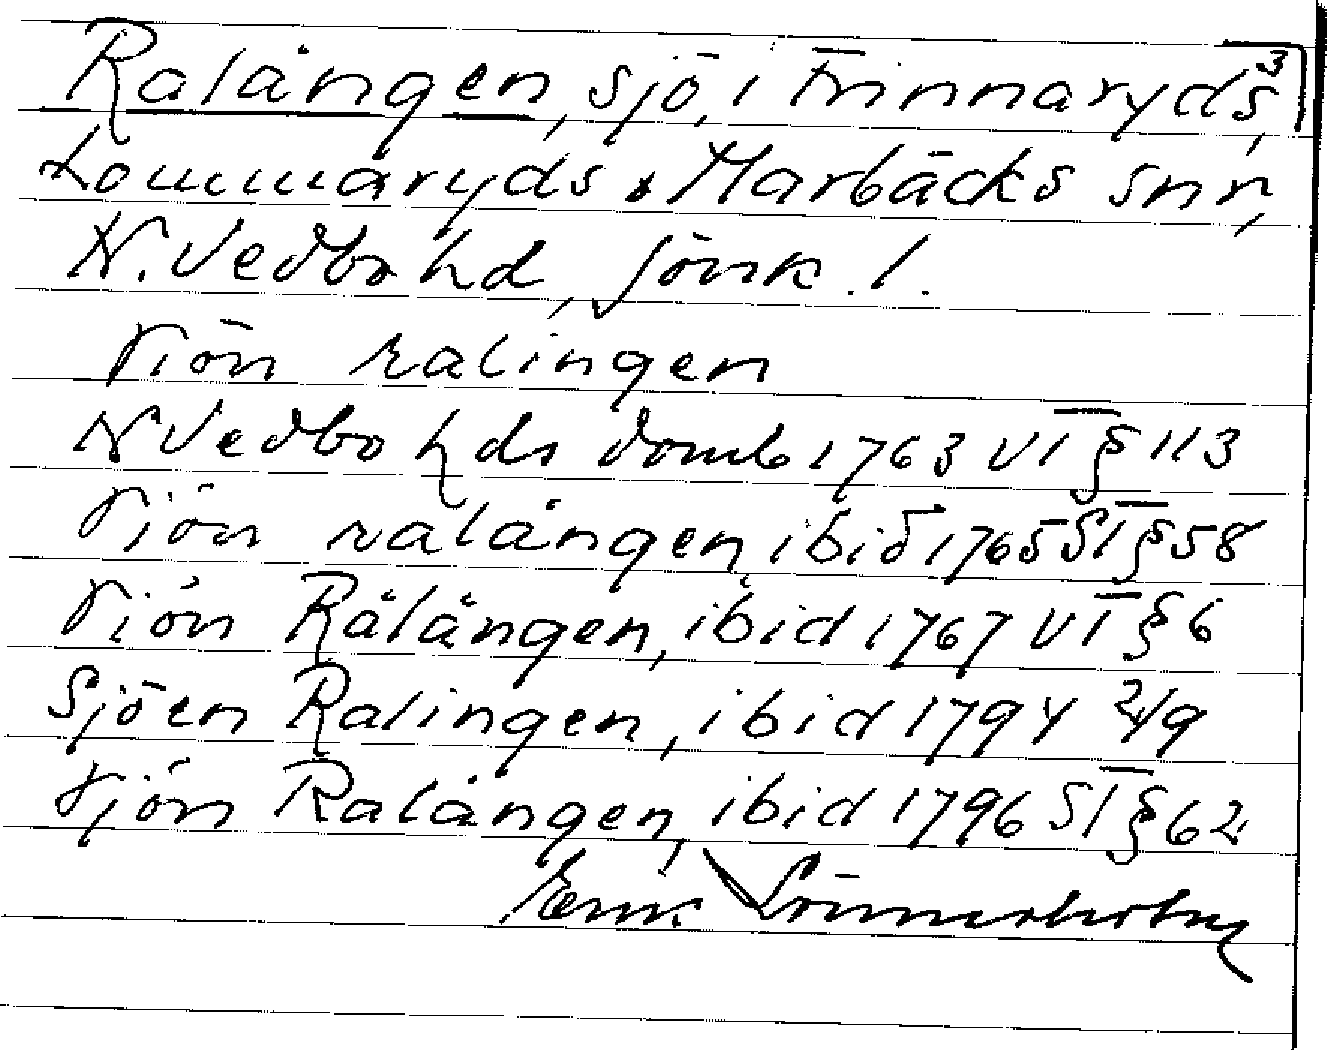 Ralången, sjö, i Frinnaryds, 3
Lommaryds o Marbäcks snr,
N. Vedbo hd, Jönk. l.
Siön ralingen
N Vedbo hds domb 1763 VT § 113
Siön ralången, ibid 1765 ST § 58
Siön Rålången, ibid 1767 VT § 6
Sjöen Ralingen, ibid 1794 2/9
Sjön Ralången, ibid 1796 ST § 62